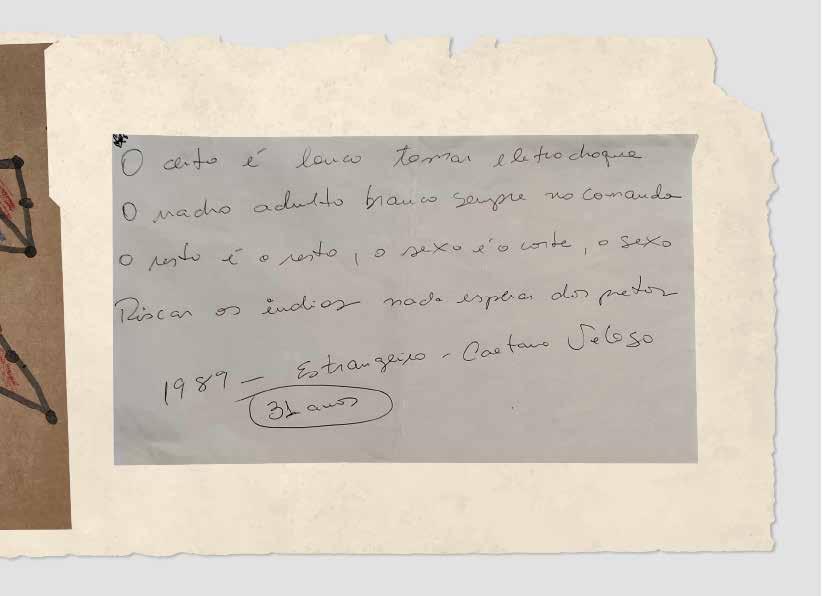 O certo é louco tomar eletrochoque
O macho adulto branco sempre no comando
O resto é o resto, o sexo é o corte, o sexo
Riscar os índios nada esperar dos pretos
1989 - Estrangeiro - Caetano Veloso
31 anos